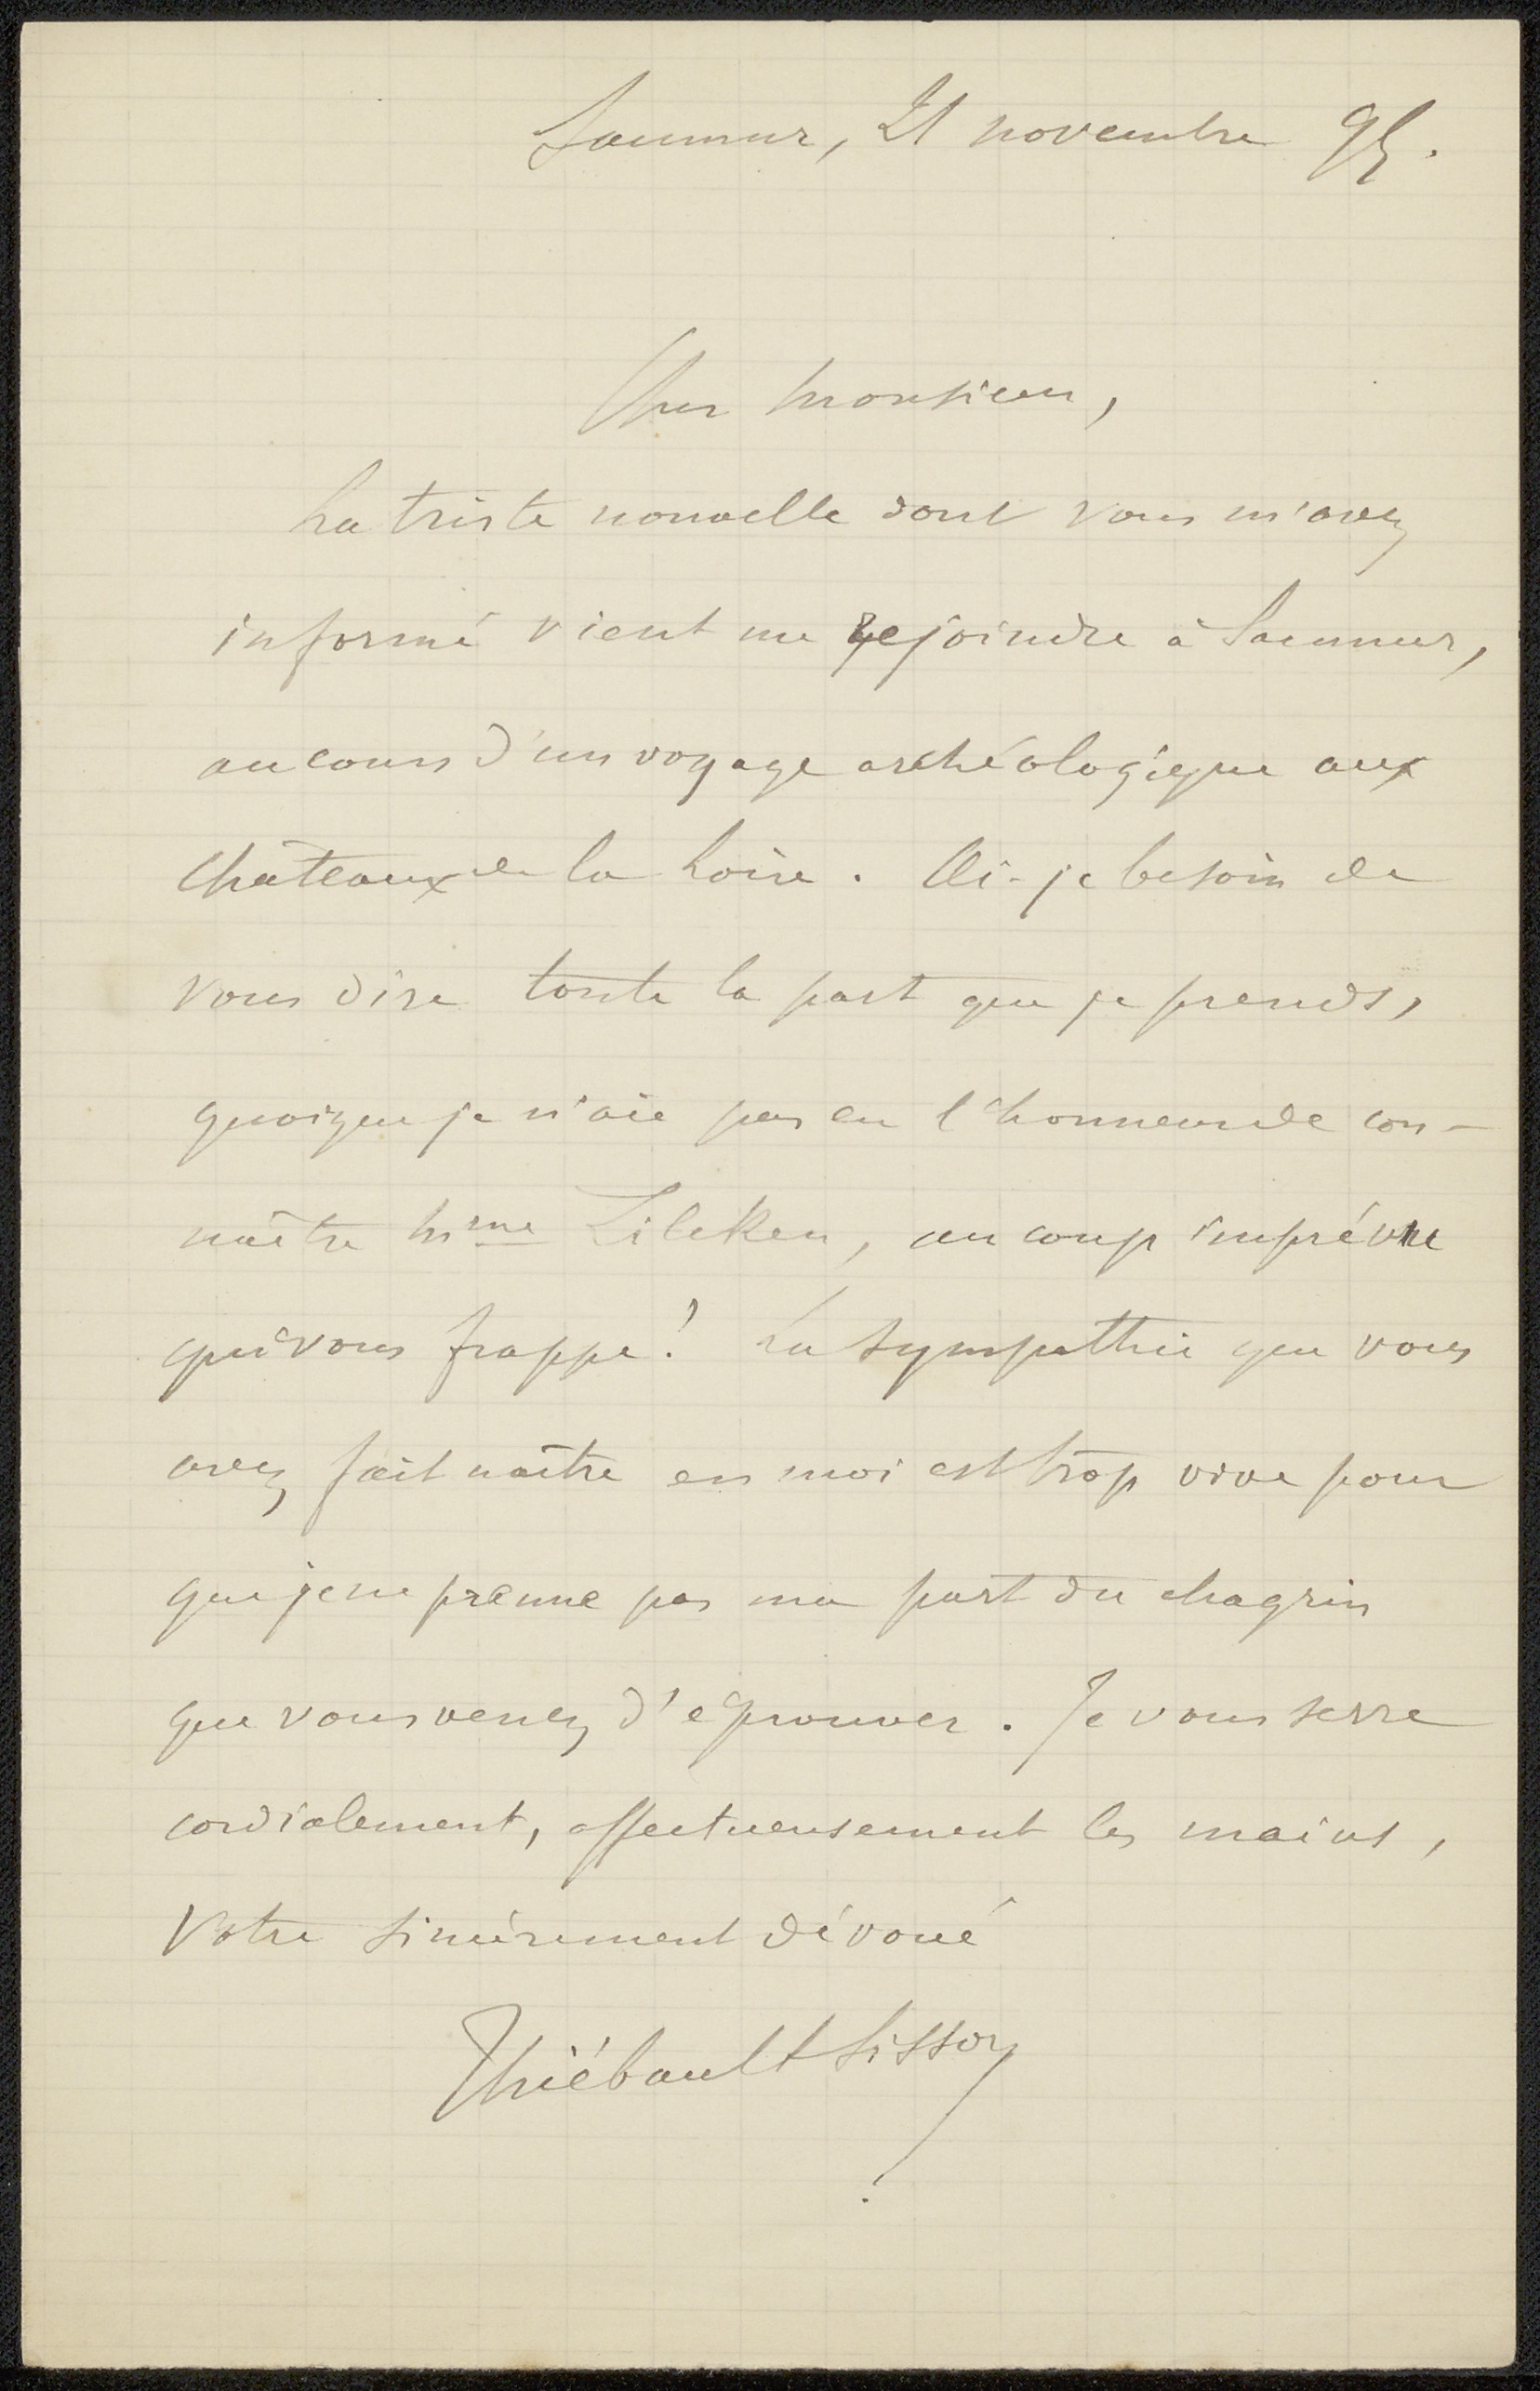 Saumur, 21 novembre 95.
Cher Monsieur,
La triste nouvelle dont vous m'avez
informé vient me rejoindre à Saumur,
au cours d'un voyage archéologique aux
châteaux de la Loire. Ai-je besoin de
vous dire toute la part que je prends,
quoique je n'aie pas eu l'honneur de con-
naître Mme Zilcken, au coup imprévu
qui vous frappe! La sympathie que vous
avez fait naître en moi est trop vive pour
que je ne prenne pas ma part du chagrin
que vous venez d'éprouver. Je vous serre
cordialement, affectueusement les mains,
Votre sincèrement dévoué
Thiébault Sisson